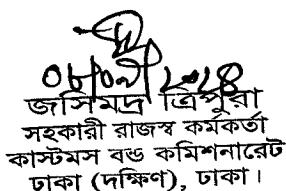 ০৮০৭।২০২৪
জসিমদ্র ত্রিপুরা
সহকারী রাজস্ব কর্মকর্তা
কাস্টমস বন্ড কমিশনারেট
ঢাকা (দক্ষিণ), ঢাকা।